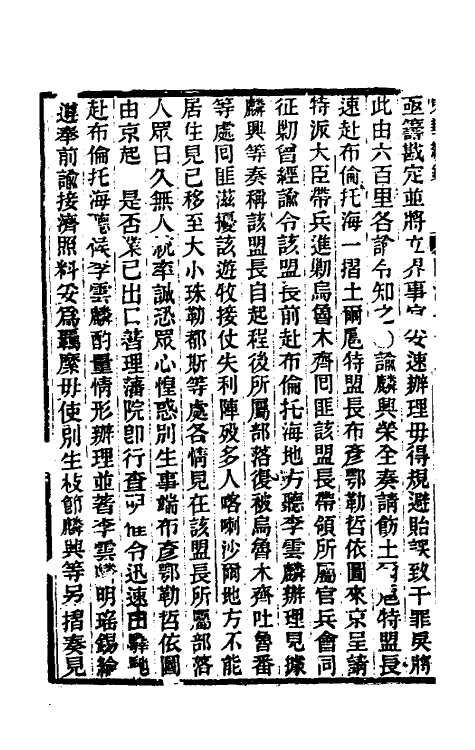 亟籌戡定並將立界事宜妥速辦理毋得規避貽誤致干罪戾將
此由六百里各諭令知之〇諭麟興榮全奏請飭土爾扈特盟長
速赴布倫托海一摺土爾扈特盟長布彥鄂勒哲依圖來京呈請
特派大臣帶兵進剿烏魯木齊囘匪該盟長帶領所屬官兵會同
征剿曾經諭令該盟長前赴布倫托海地方聽李雲麟辦理見據
麟興等奏稱該盟長自起程後所屬部落復被烏魯木齊吐魯番
等處囘匪滋擾該遊牧接仗失利陣歿多人喀喇沙爾地方不能
居住見已移至大小珠勒都斯等處各情見在該盟長所屬部落
人眾日久無人統率誠恐眾心惶惑別生事端布彥鄂勒哲依圖
由京起 是否業已出口著理藩院卽行查明催令迅速由驛馳
赴布倫托海聽候李雲麟酌量情形辦理並著李雲麟明瑤錫綸
遵奉前諭接濟照料妥為羈縻毋使別生枝節麟興等另摺奏見